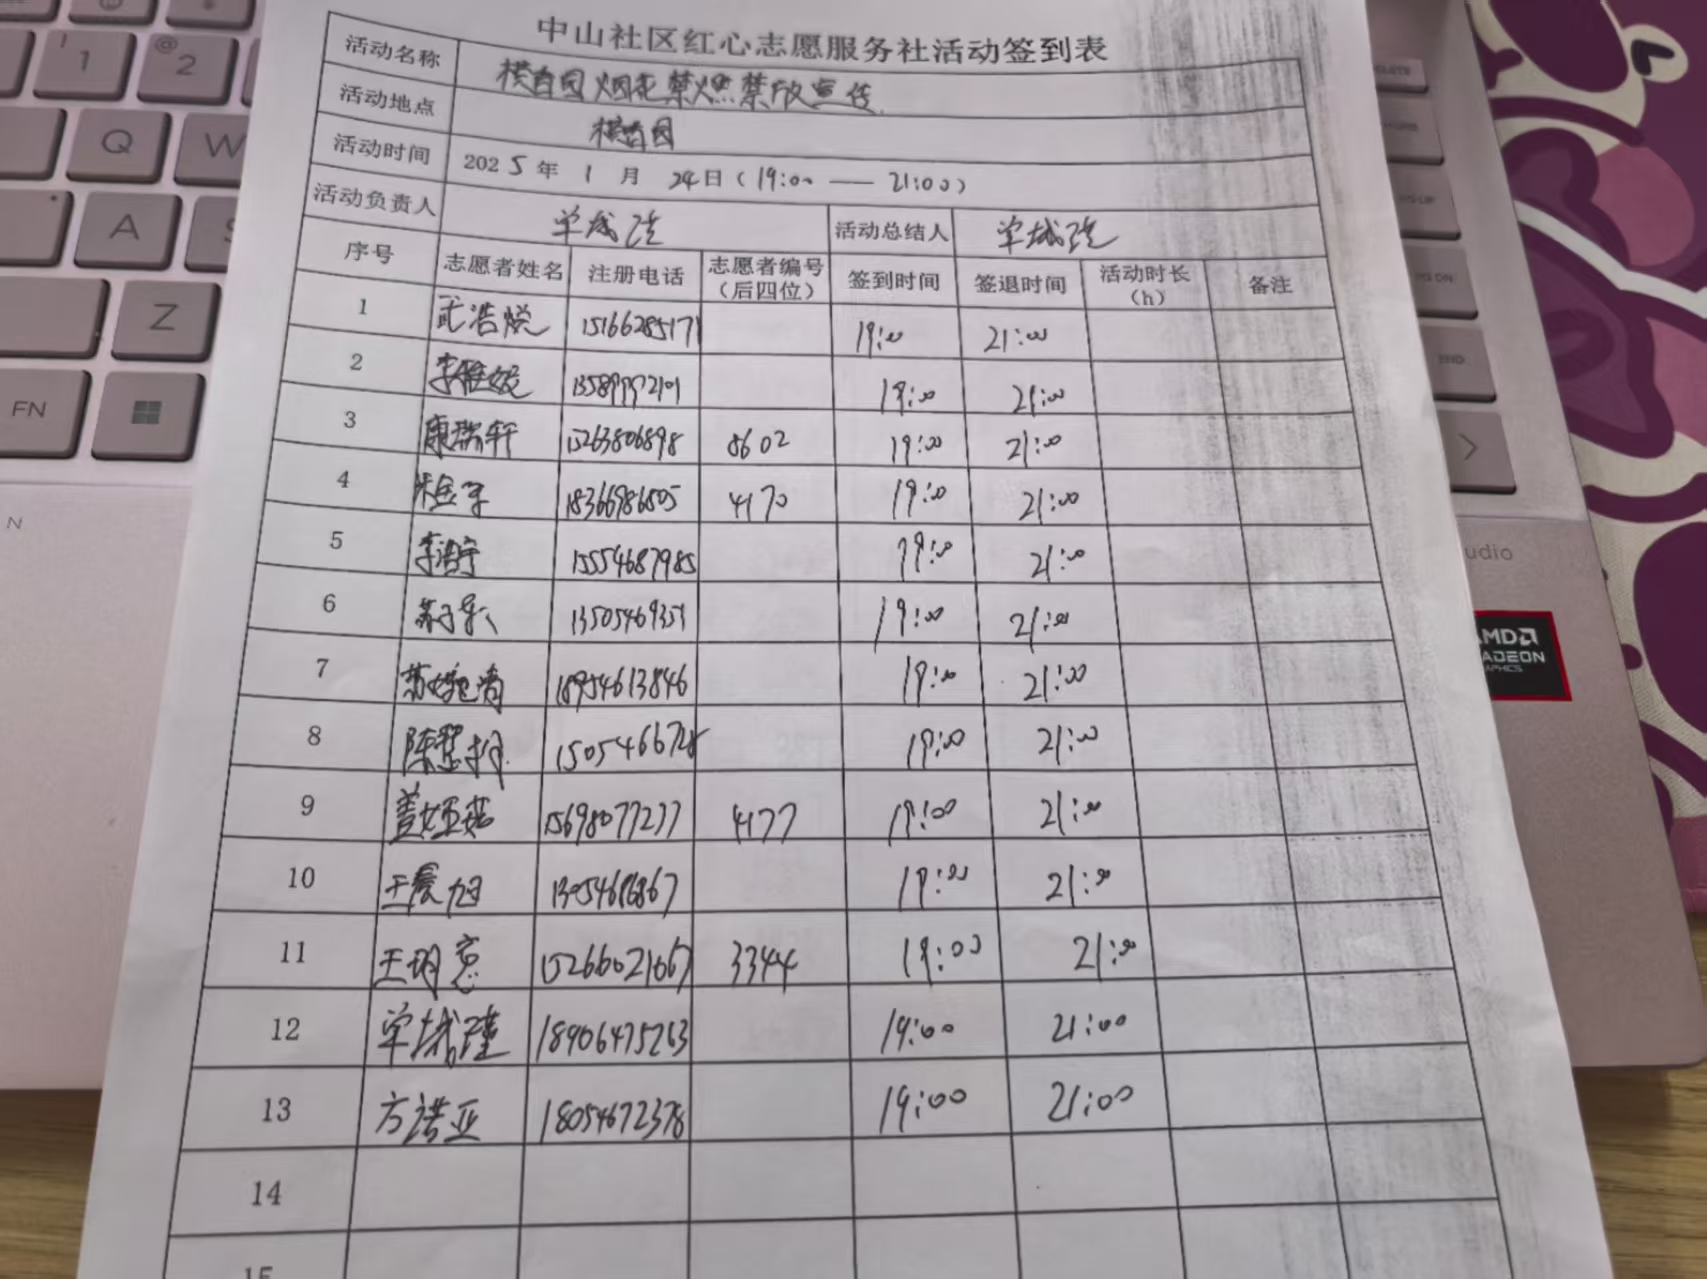 中山社区红心志愿服务社活动签到表
活动名称 烟花禁燃禁放宣传
活动地点
活动时间 2025年 1 月 24日(19:00 — 21:00)
活动负责人 单城瑾 活动总结人 单城瑾
序号 志愿者姓名 注册电话 志愿者编号(后四位) 签到时间 签退时间 活动时长(h) 备注
1 武浩悦 15166285171 19:00 21:00
2 19:00 21:00
3 康瑞轩 15263806898 8602 19:00 21:00
4 18366986805 4170 19:00 21:00
5 李浩宇 15554687985 19:00 21:00
6 苏子乐 13505469351 19:00 21:00
7 18954613846 19:00 21:00
8 19:00 21:00
9 15698077277 4177 19:00 21:00
10 王晨旭 19:00 21:00
11 15266021667 3344 19:00 21:00
12 单城瑾 18906475263 19:00 21:00
13 方诺亚 18054672378 19:00 21:00
14
15
1
@
2
Q
W
A
S
Z
FN
N
DELETE
PG UP
PG DN
END
AMD
RADEON
GRAPHICS